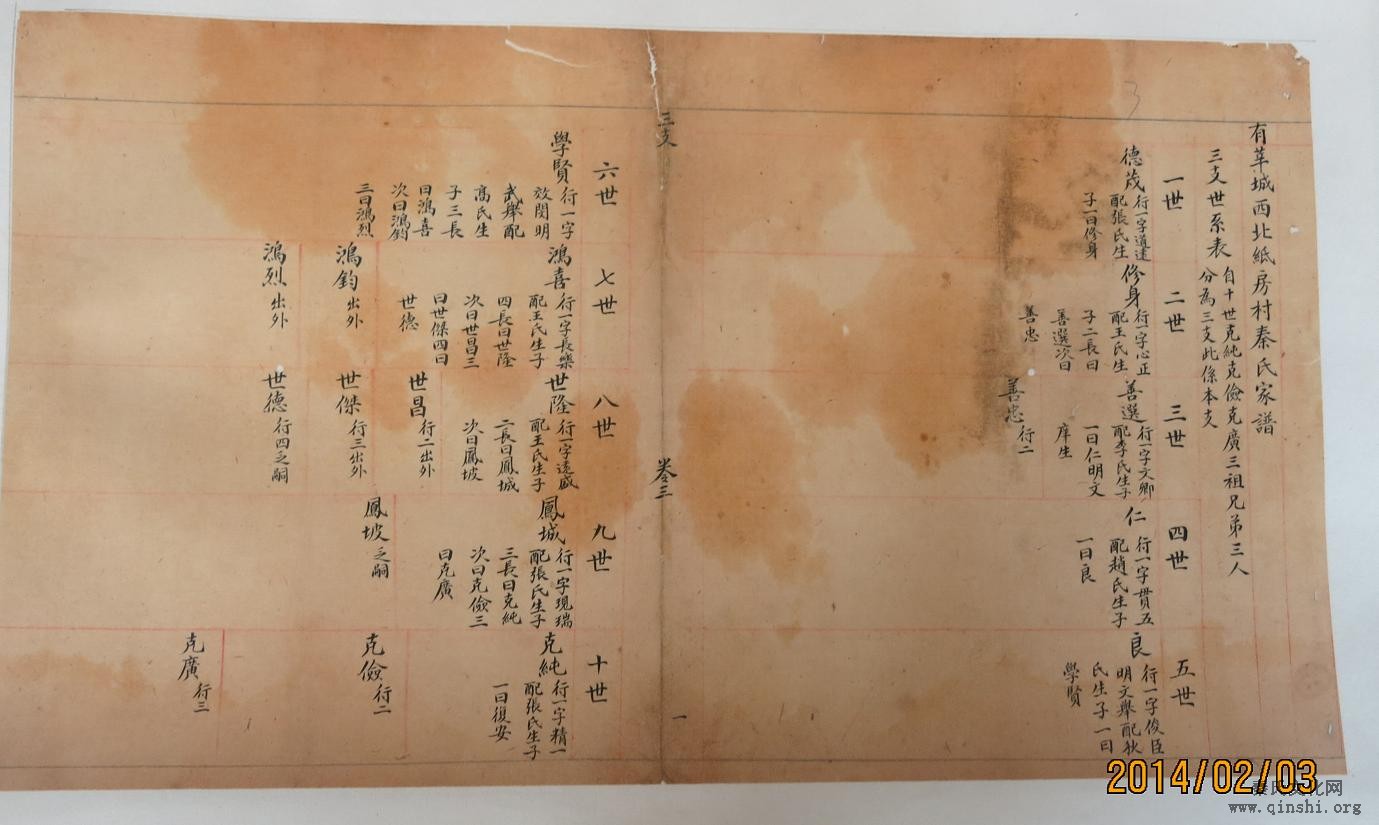 有莘城西北紙房村秦氏家譜
三支世系表
自十世克純克儉克廣三祖兄弟三人
分為三支此係本支
一世
德茂
行一字道遠
配張氏生
子一曰修身
二世
修身
行一字心正
配王氏生
子二長曰
善選次曰
善忠
三世
善選
行一字文卿
配李氏生子
一曰仁明文
庠生
善忠
行二
四世
仁
行一字貫五
配趙氏生子
一曰良
五世
良
行一字俊臣
明文舉配狄
氏生子一曰
學賢
三支
卷三
一
六世
學賢
行一字
效閔明
武舉配
高氏生
子三長
曰鴻喜
次曰鴻鈞
三曰鴻烈
七世
鴻喜
行一字長樂
配王氏生子
四長曰世隆
次曰世昌三
曰世傑四曰
世德
鴻鈞
出外
鴻烈
出外
八世
世隆
行一字遠盛
配王氏生子
二長曰鳳城
次曰鳳坡
世昌
行二出外
世傑
行三出外
世德
行四乏嗣
九世
鳳城
行一字現瑞
配張氏生子
三長曰克純
次曰克儉三
曰克廣
鳳坡
乏嗣
十世
克純
行一字精一
配張氏生子
一曰復安
克儉
行二
克廣
行三
3
2014/02/03
秦氏文化网
www.qinshi.org